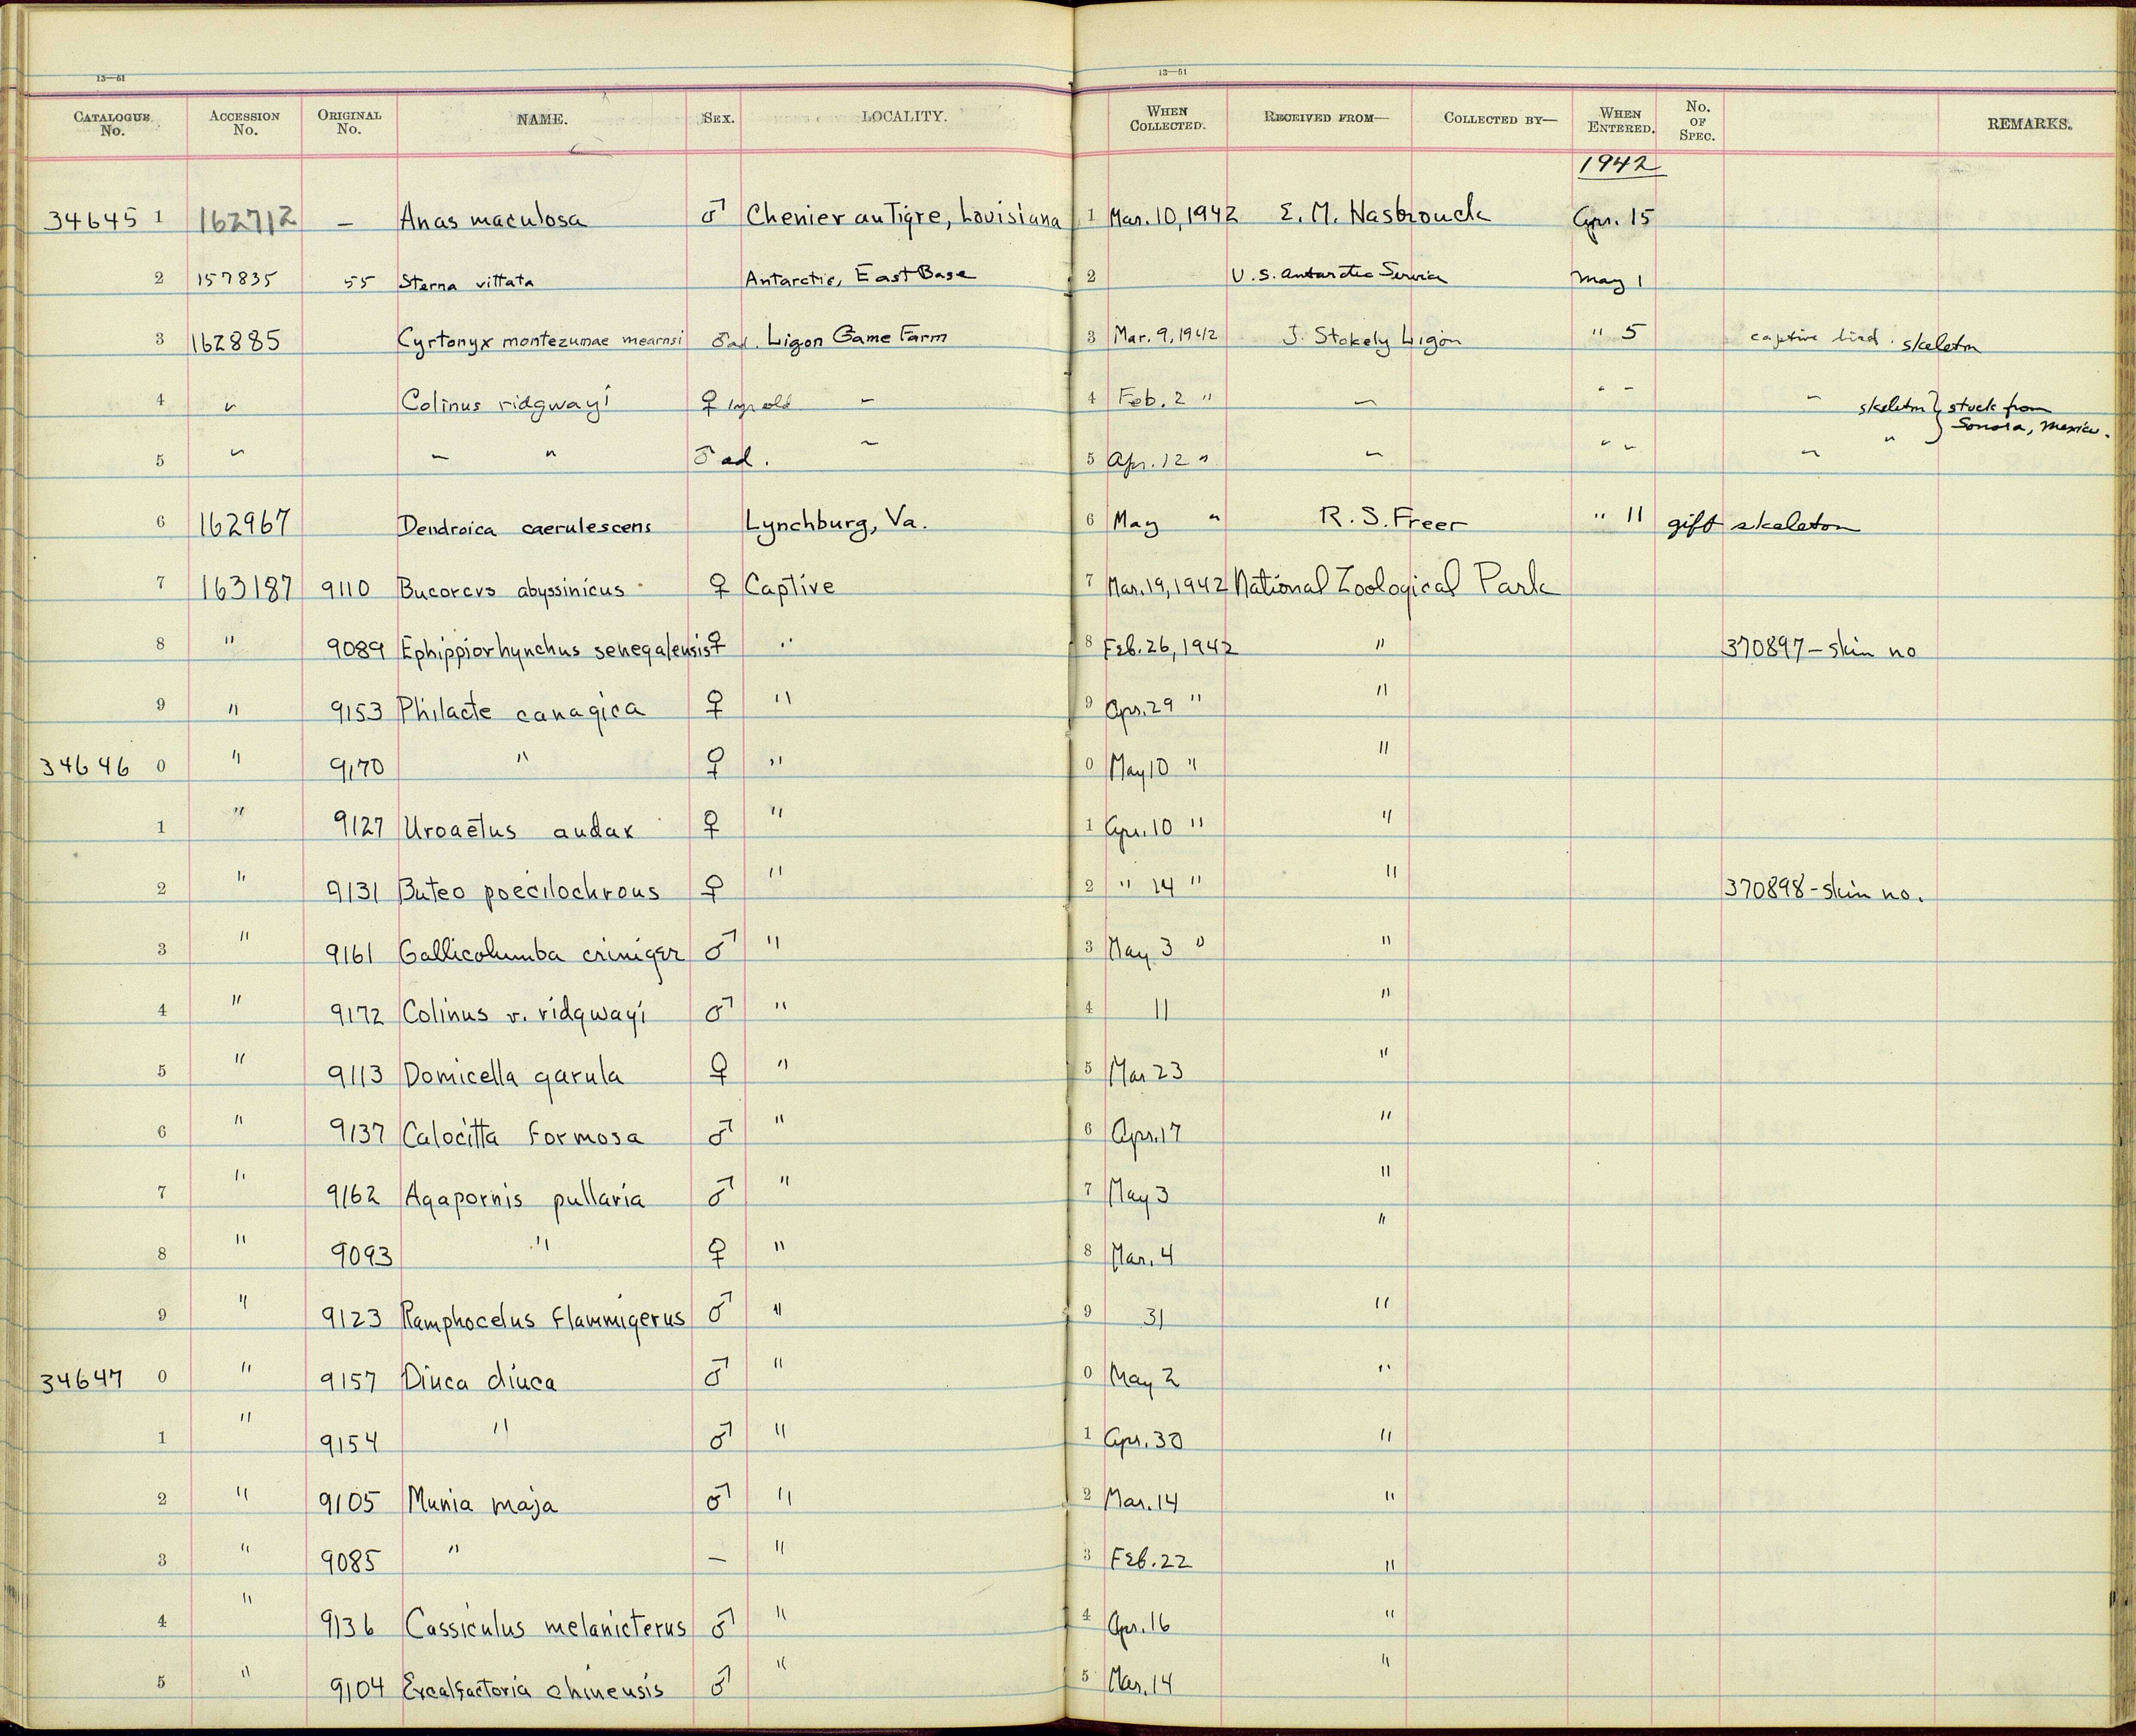 13—51 13—51
CATALOGUE No. ACCESSION No. ORIGINAL No. NAME. SEX. LOCALITY. WHEN COLLECTED. RECEIVED FROM— COLLECTED BY— WHEN ENTERED. No. OF SPEC. REMARKS.
1942
34645 1 162712 — Anas maculosa ♂ Chenier au Tigre, Louisiana 1 Mar. 10, 1942 E. M. Hasbrouck Apr. 15
2 157835 55 Sterna vittata Antarctic, East Base 2 U.S. Antarctic Service May 1
3 162885 Cyrtonyx montezumae mearnsi ♂ad. Ligon Game Farm 3 Mar. 9, 1942 J. Stokely Ligon " 5 captive bird. skeleton
4 " Colinus ridgwayi ♀ 1 yr old " 4 Feb. 2 " " " " " skeleton } stock from
5 " " " ♂ ad. " 5 Apr. 12 " " " " " " Sonora, Mexico.
6 162967 Dendroica caerulescens Lynchburg, Va. 6 May " R. S. Freer " 11 gift skeleton
7 163187 9110 Bucorvs abyssinicus ♀ Captive 7 Mar. 19, 1942 National Zoological Park
8 " 9089 Ephippiorhynchus senegalensis ♀ " 8 Feb. 26, 1942 " 370897 – skin no
9 " 9153 Philacte canagica ♀ " 9 Apr. 29 " "
34646 0 " 9170 " ♀ " 0 May 10 " "
1 " 9127 Uroaetus audax ♀ " 1 Apr. 10 " "
2 " 9131 Buteo poecilochrous ♀ " 2 " 14 " " 370898 - skin no.
3 " 9161 Gallicolumba criniger ♂ " 3 May 3 " "
4 " 9172 Colinus v. ridgwayi ♂ " 4 11 "
5 " 9113 Domicella garula ♀ " 5 Mar 23 "
6 " 9137 Calocitta formosa ♂ " 6 Apr. 17 "
7 " 9162 Agapornis pullaria ♂ " 7 May 3 "
8 " 9093 " ♀ " 8 Mar. 4 "
9 " 9123 Ramphocelus flammigerus ♂ " 9 31 "
34647 0 " 9157 Diuca diuca ♂ " 0 May 2 "
1 " 9154 " ♂ " 1 Apr. 30 "
2 " 9105 Munia maja ♂ " 2 Mar. 14 "
3 " 9085 " — " 3 Feb. 22 "
4 " 9136 Cassiculus melanicterus ♂ " 4 Apr. 16 "
5 " 9104 Excalfactoria chinensis ♂ " 5 Mar. 14 "